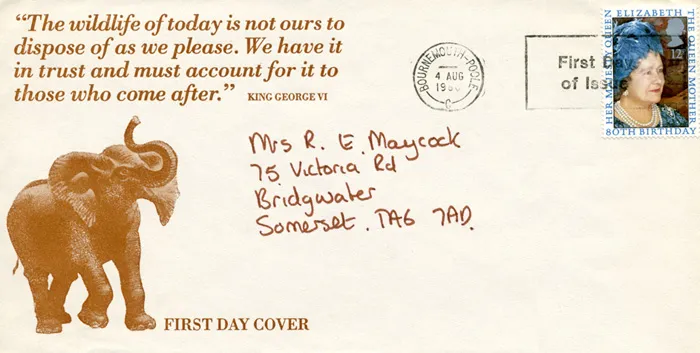 “The wildlife of today is not ours to
dispose of as we please. We have it
in trust and must account for it to
those who come after.” KING GEORGE VI
BOURNEMOUTH-POOLE
4 AUG
1980
C
First Day
of Issue
HER MAJESTY QUEEN ELIZABETH THE QUEEN MOTHER
12
80TH BIRTHDAY
Mrs R. E. Maycock
75 Victoria Rd
Bridgwater
Somerset. TA6 7AD.
FIRST DAY COVER